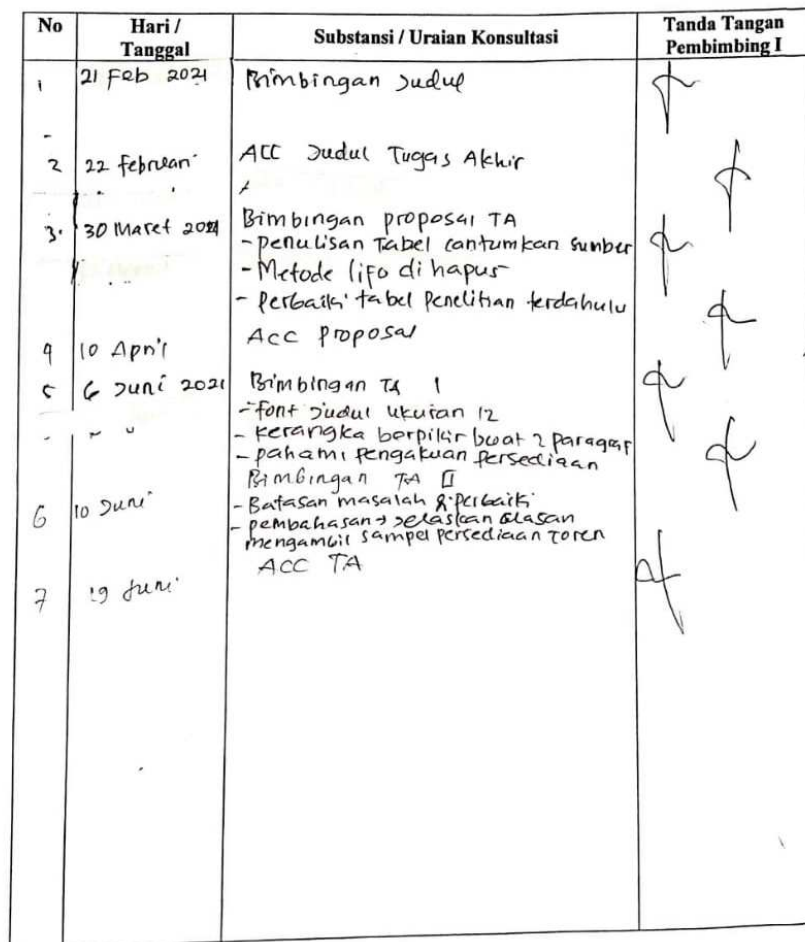 No Hari / Tanggal Substansi / Uraian Konsultasi Tanda Tangan Pembimbing I
1 21 Feb 2021 Bimbingan Judul
2 22 februari ACC Judul Tugas Akhir
3. 30 Maret 2021 Bimbingan proposal TA
- penulisan Tabel cantumkan sumber
- Metode lifo di hapus
- Perbaiki tabel Penelitian terdahulu
4 10 April Acc proposal
5 6 Juni 2021 Bimbingan TA I
- font Judul ukuran 12
- kerangka berpikir buat 2 paragraf
- pahami pengakuan persediaan
6 10 Juni Bimbingan TA II
- Batasan masalah diperbaiki
- pembahasan → Jelaskan alasan
mengambil sampel persediaan Toren
7 19 Juni ACC TA